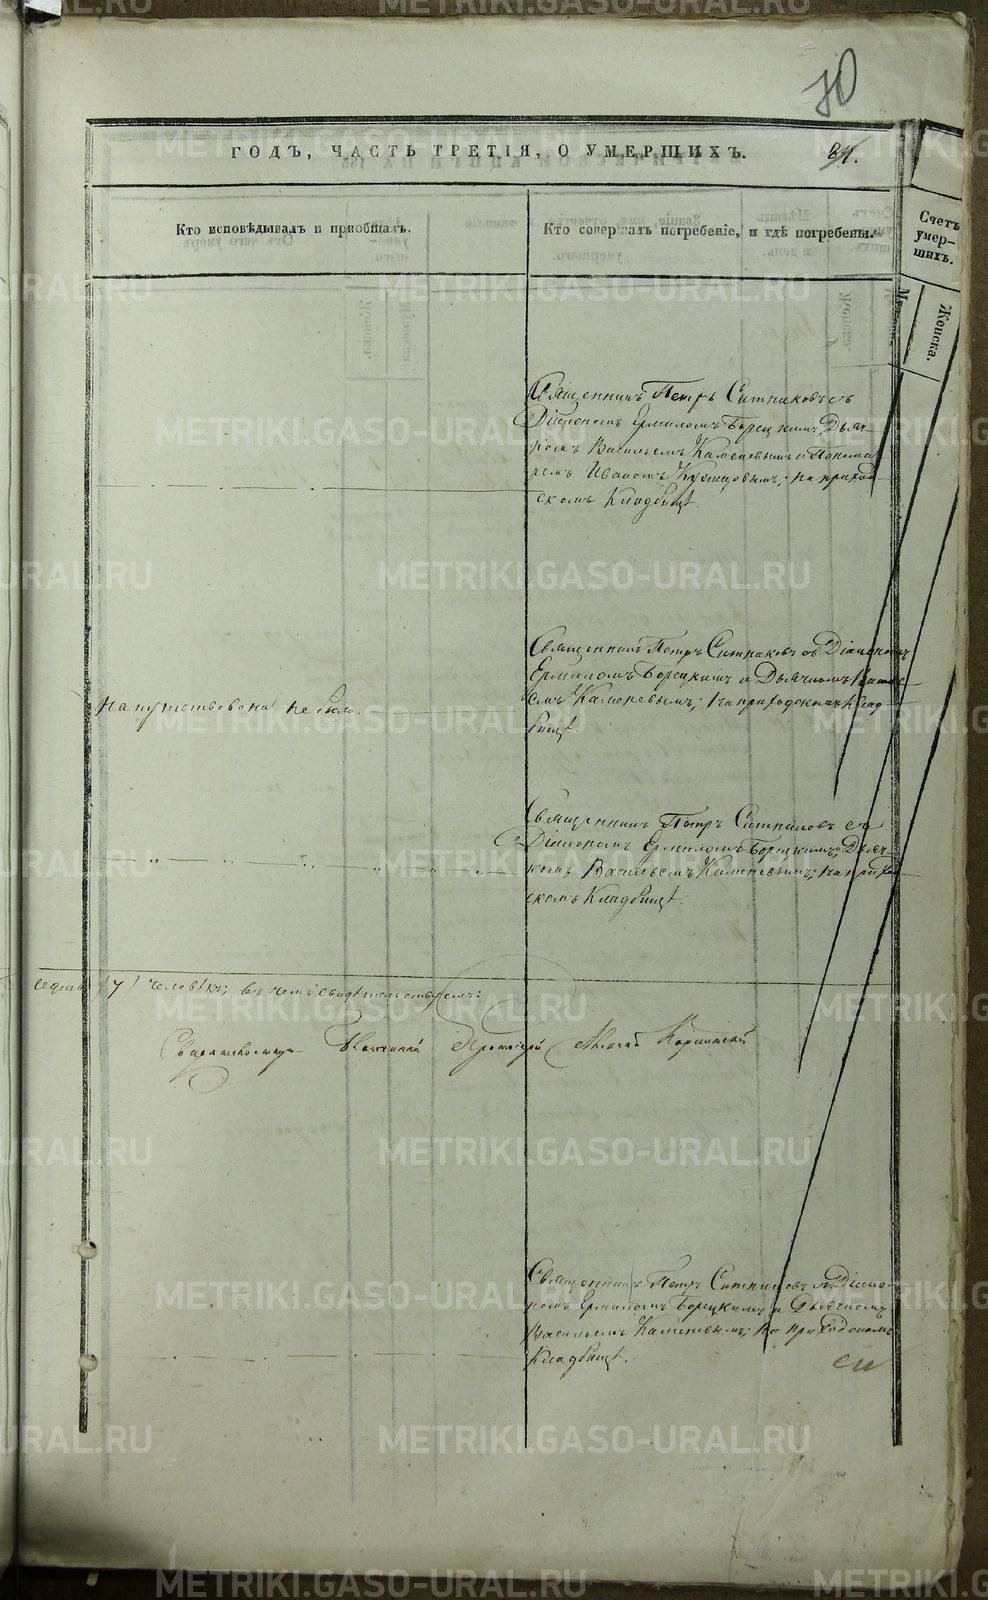 METRIKI.GASO-URAL.RU
70
ГОДЪ, ЧАСТЬ ТРЕТІЯ, О УМЕРШИХЪ.
84.
Кто исповѣдывалъ и пріобщалъ.
Кто совершалъ погребеніе, и гдѣ погребены.
Счетъ умер-
шихъ.
Женска.
Священникъ Петръ Ситниковъ съ
Діакономъ Ермиломъ Борецкимъ, Дьяч-
комъ Васильемъ Каменевымъ и Понома
ремъ Иваномъ Кузнецовымъ; на приход
скомъ Кладбищѣ.
Священникъ Петръ Ситниковъ съ Діакономъ
Ермиломъ Борецкимъ и Дьячкомъ Василь-
емъ Каменевымъ; на приходскомъ Клад-
бищѣ.
Напутствована не была.
Священникъ Петръ Ситниковъ съ
Діакономъ Ермиломъ Борецкимъ, Дьяч-
комъ Васильемъ Каменевымъ; на приход-
скомъ Кладбищѣ.
седмь (7) человѣкъ; въ чемъ свидѣтельствуемъ:
Протоіерей
Священникъ Петръ Ситниковъ съ Діако-
номъ Ермиломъ Борецкимъ и Дьячкомъ
Васильемъ Каменевымъ; на приходскомъ
Кладбищѣ.